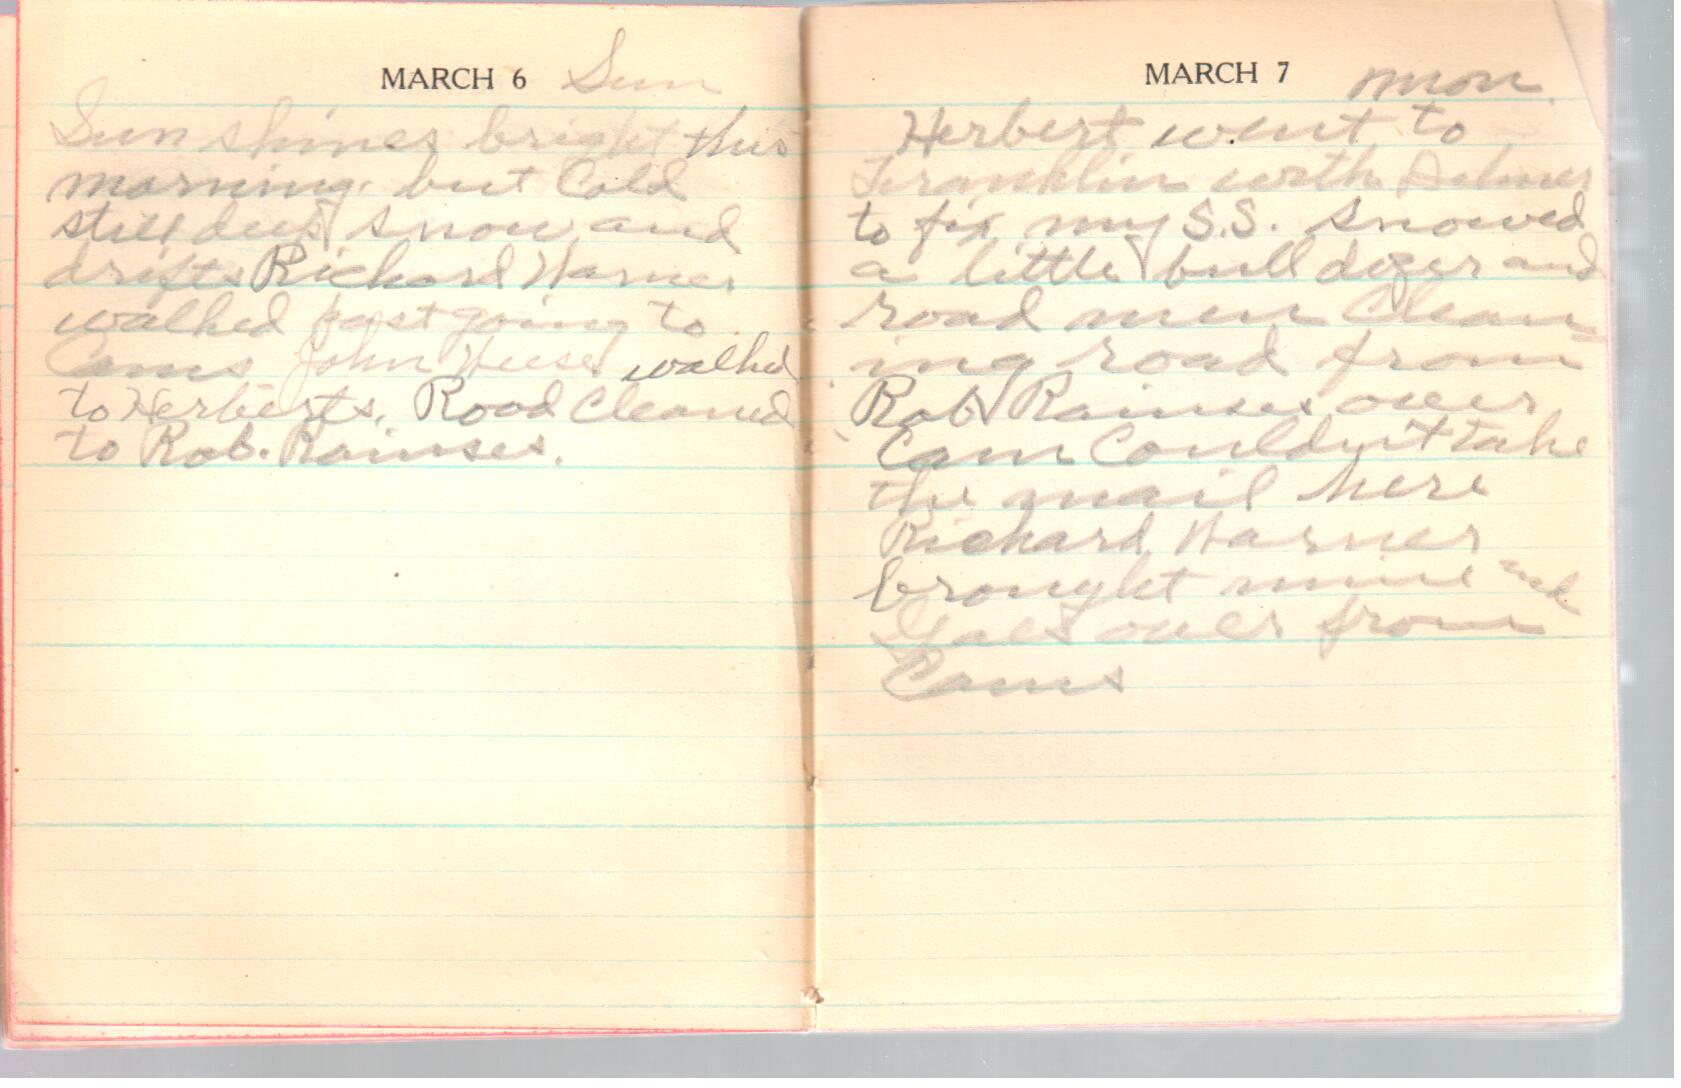 MARCH 6 Sun
Sun shines bright this
morning but Cold
still deep snow and
drifts Richard Warner
walked past going to
Cams John Weese walked
to Herberts. Road Cleaned
to Rob. Rainses.
MARCH 7 mon.
Herbert went to
Franklin with Delmer
to fix my S.S. Snowed
a little bull dozer and
road men Clean-
ing road from
Rob Rainses over
Cam Couldn't take
the mail here
Richard Warner
brought mine and
over from
Cams